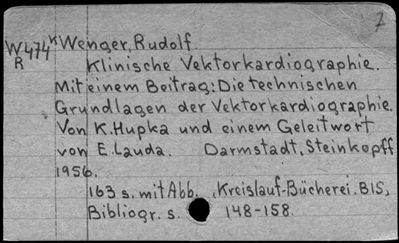 7
W474K Wenger, Rudolf.
R Klinische Vektorkardiographie.
Mit einem Beitrag: Die technischen
Grundlagen der Vektorkardiographie.
Von K. Hupka und einem Geleitwort
von E. Lauda. Darmstadt, Steinkopff
1956.
163 s. mit Abb. (Kreislauf-Bücherei. Bl5,
Bibliogr. s. 148-158.